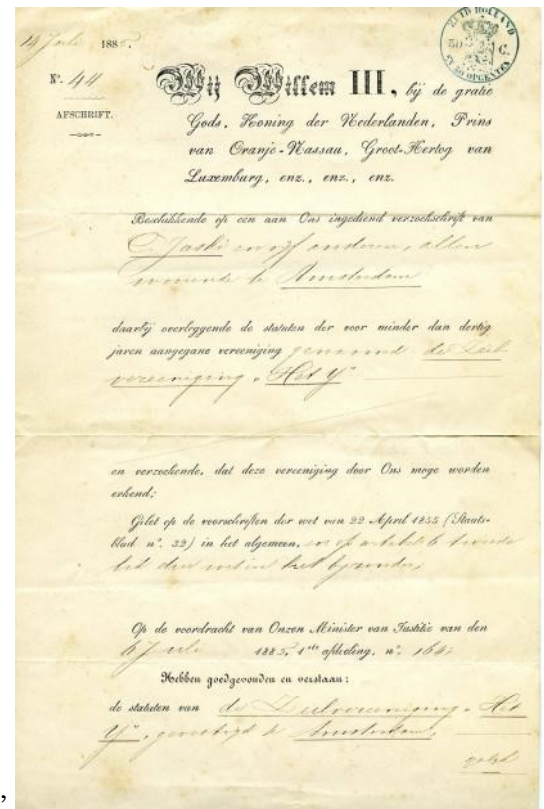 14 Juli 1885.
ZUID HOLLAND
50 C.
EN 38 OPCENTEN
Nº. 44
AFSCHRIFT.
Wij Willem III, bij de gratie
Gods, Koning der Nederlanden, Prins
van Oranje-Nassau, Groot-Hertog van
Luxemburg, enz., enz., enz.
Beschikkende op een aan Ons ingediend verzoekschrift van
C. Jaski en vijf anderen, allen
wonende te Amsterdam
daarbij overleggende de statuten der voor minder dan dertig
jaren aangegane vereeniging genaamd de Zeil
vereeniging „Het Y"
en verzoekende, dat deze vereeniging door Ons moge worden
erkend;
Gelet op de voorschriften der wet van 22 April 1855 (Staats-
blad nº. 32) in het algemeen, en op artikel 6 tweede
lid dier wet in het bijzonder;
Op de voordracht van Onzen Minister van Justitie van den
6 Juli 1885, 1ste afdeeling, nº. 164;
Hebben goedgevonden en verstaan:
de statuten van de Zeilvereeniging „Het
Y", gevestigd te Amsterdam,
,